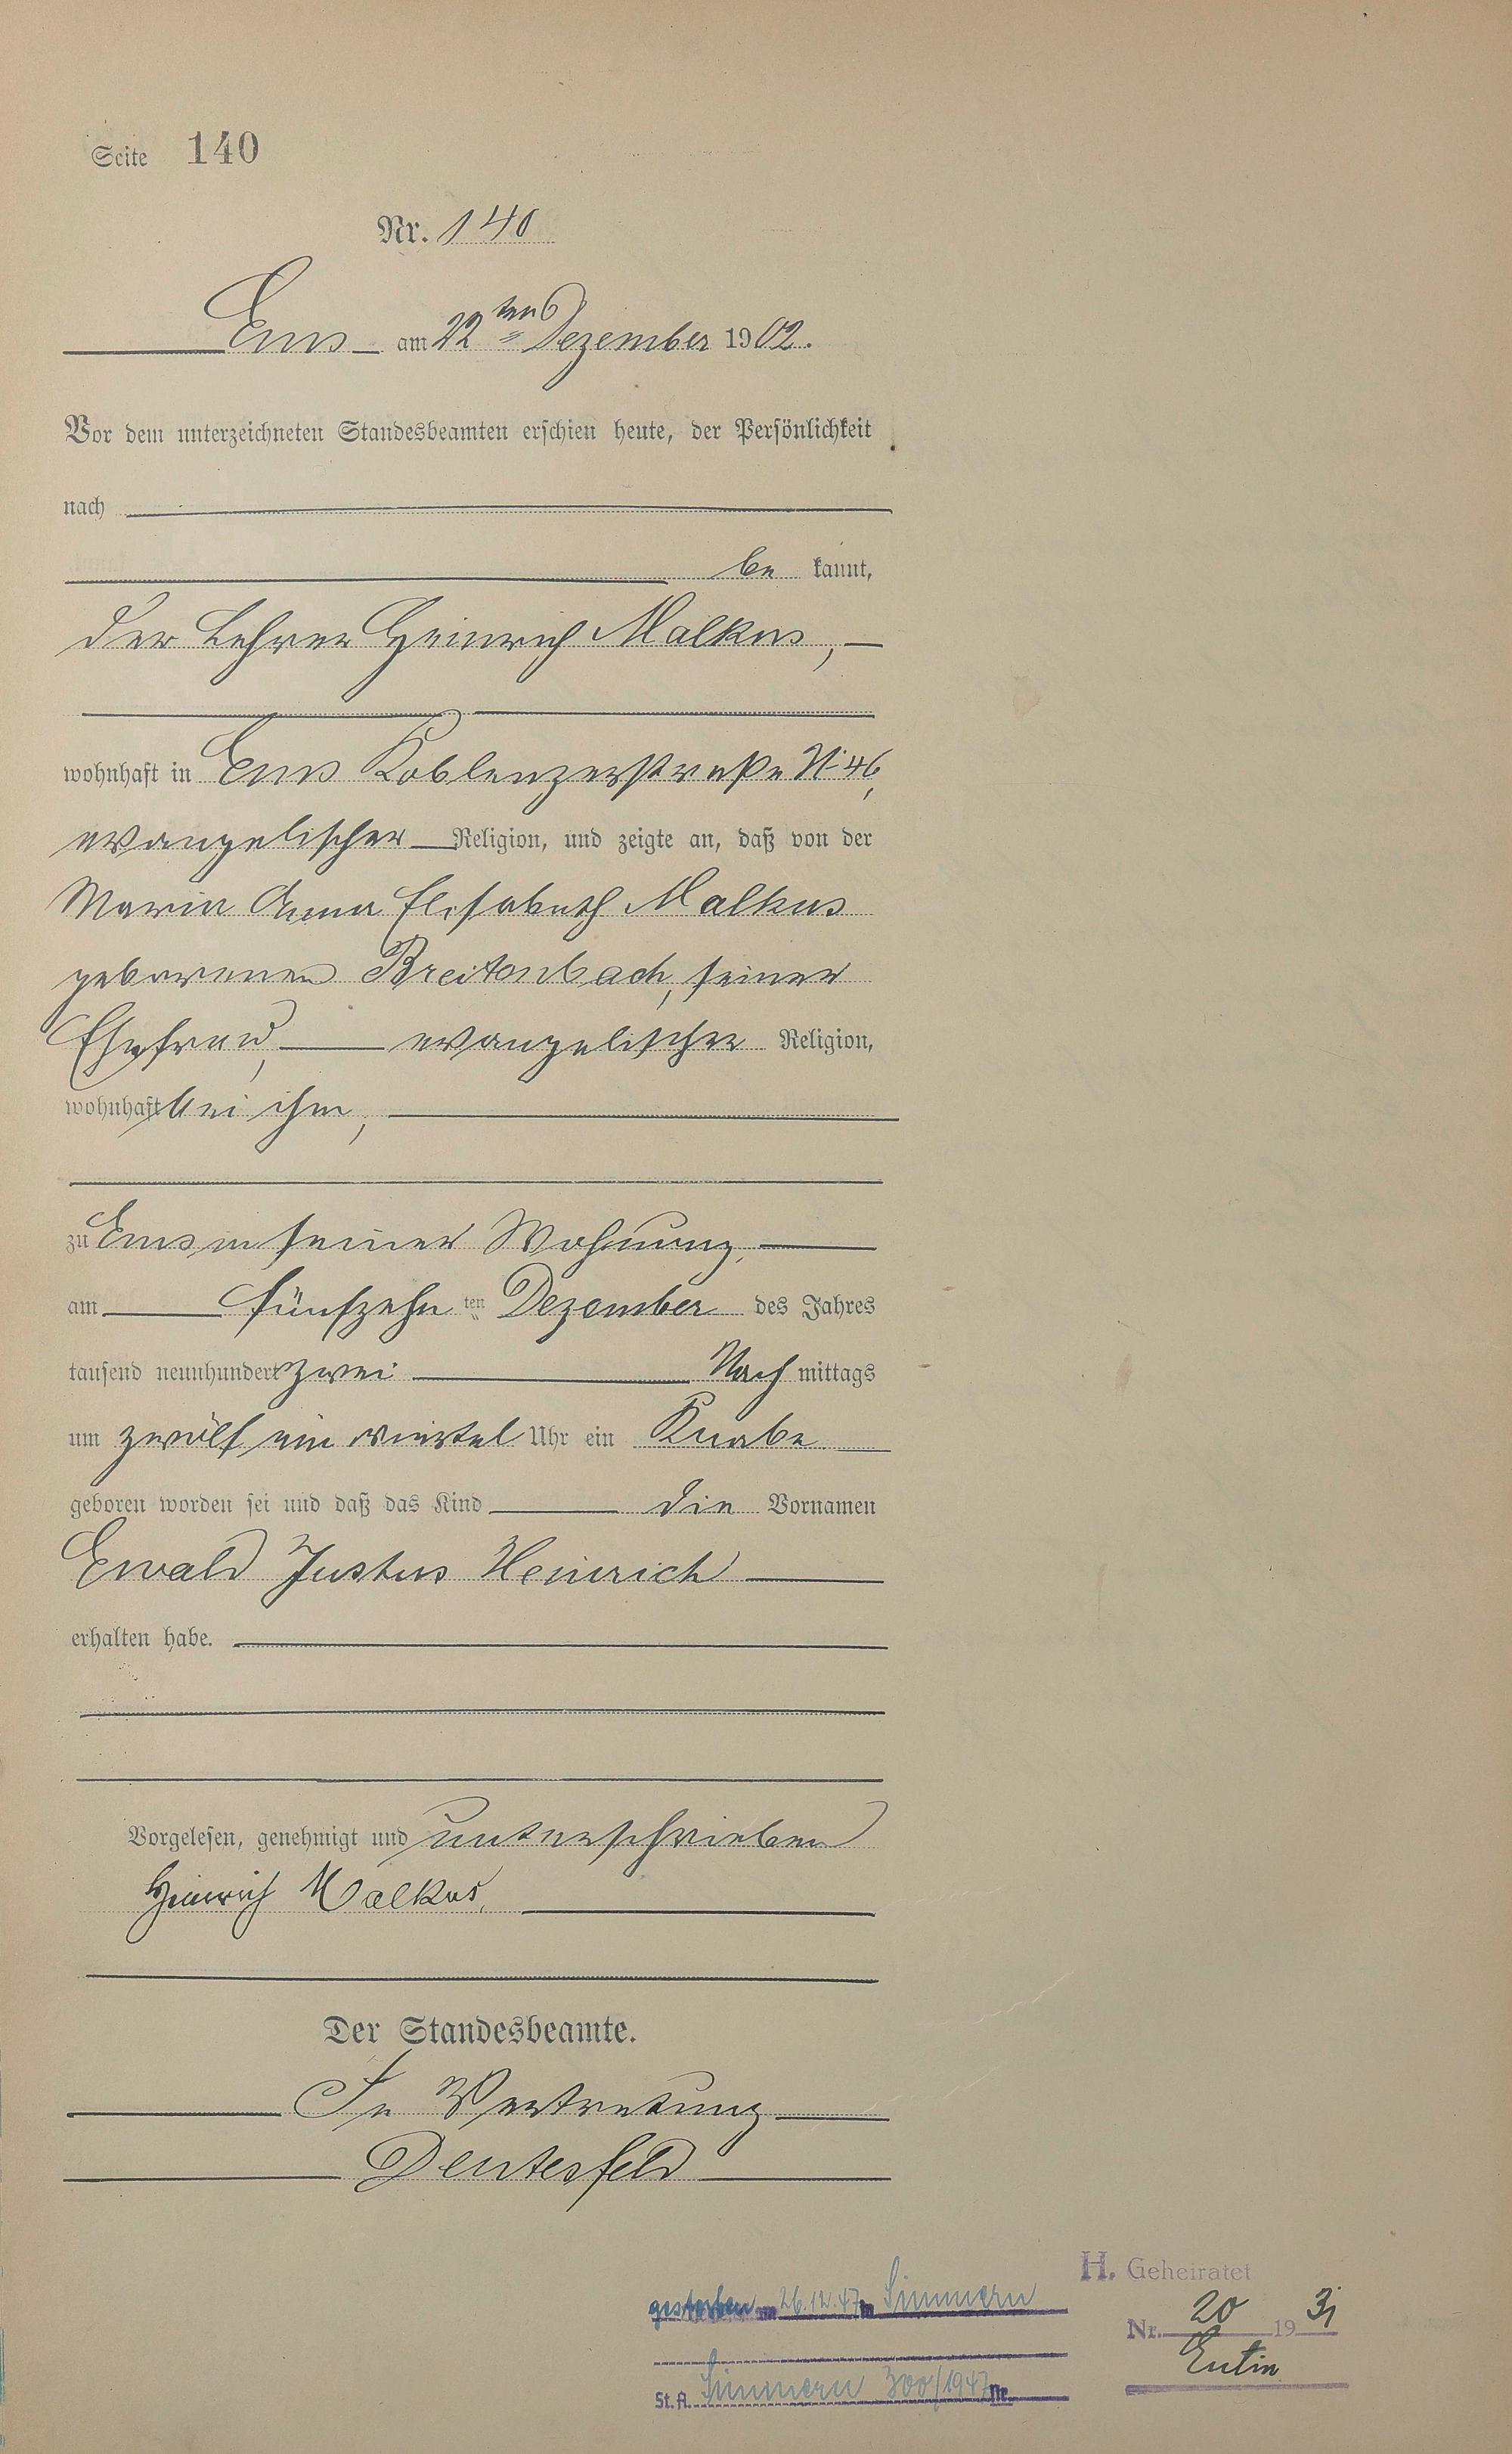 Seite 140
Nr. 140
Ems am 22ten Dezember 1902.
Vor dem unterzeichneten Standesbeamten erschien heute, der Persönlichkeit
nach
be kannt,
der Lehrer Heinrich Malkus,
wohnhaft in Ems Koblenzerstraße N. 46,
evangelischer Religion, und zeigte an, daß von der
Maria Anna Elisabeth Malkus
geborenen Breitenbach, seiner
Ehefrau, evangelischer Religion,
wohnhaft bei ihm,
zu Ems in seiner Wohnung,
am fünfzehn ten Dezember des Jahres
tausend neunhundert zwei Nach mittags
um zwölf ein viertel Uhr ein Knabe
geboren worden sei und daß das Kind die Vornamen
Ewald Justus Heinrich
erhalten habe.
Vorgelesen, genehmigt und unterschrieben
Heinrich Malkus.
Der Standesbeamte.
In Vertretung
Deutesfeld
H. Geheiratet
Nr. 20 19 31
Eutin
gestorben am 26.12.47 in Simmern
St. A. Simmern 300/1947 Nr.